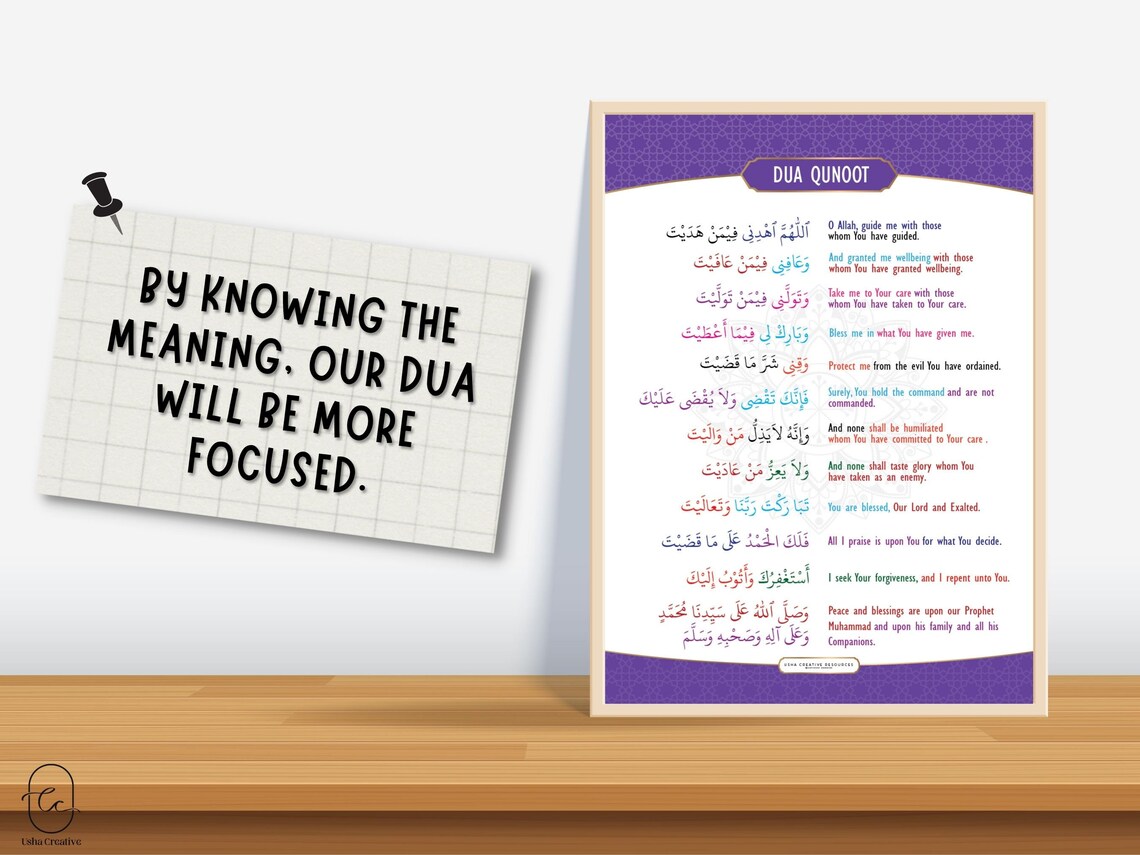 BY KNOWING THE
MEANING, OUR DUA
WILL BE MORE
FOCUSED.
DUA QUNOOT
اَللّٰهُمَّ ٱهْدِنِي فِيْمَنْ هَدَيْتَ
O Allah, guide me with those
whom You have guided.
وَعَافِنِي فِيْمَنْ عَافَيْتَ
And granted me wellbeing with those
whom You have granted wellbeing.
وَتَوَلَّنِي فِيْمَنْ تَوَلَّيْتَ
Take me to Your care with those
whom You have taken to Your care.
وَبَارِكْ لِي فِيْمَا أَعْطَيْتَ
Bless me in what You have given me.
وَقِنِي شَرَّ مَا قَضَيْتَ
Protect me from the evil You have ordained.
فَإِنَّكَ تَقْضِى وَلاَ يُقْضَى عَلَيْكَ
Surely, You hold the command and are not
commanded.
وَإِنَّهُ لاَيَذِلُّ مَنْ وَالَيْتَ
And none shall be humiliated
whom You have committed to Your care .
وَلاَ يَعِزُّ مَنْ عَادَيْتَ
And none shall taste glory whom You
have taken as an enemy.
تَبَا رَكْتَ رَبَّنَا وَتَعَالَيْتَ
You are blessed, Our Lord and Exalted.
فَلَكَ الْحَمْدُ عَلَى مَا قَضَيْتَ
All I praise is upon You for what You decide.
أَسْتَغْفِرُكَ وَأَتُوْبُ إِلَيْكَ
I seek Your forgiveness, and I repent unto You.
وَصَلَّى ٱللهُ عَلَى سَيِّدِنَا مُحَمَّدٍ
وَعَلَى آلِهِ وَصَحْبِهِ وَسَلَّمَ
Peace and blessings are upon our Prophet
Muhammad and upon his family and all his
Companions.
USHA CREATIVE RESOURCES
Usha Creative